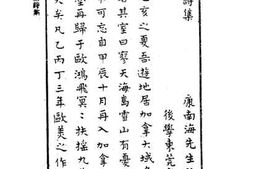 詩集
康南海先生
後學東莞
亥之夏吾遊地居加拿大域多
其室曰寥天海島雪山有憂
可忘自甲辰十月再入加拿
再歸于歐鴻飛冥冥扶搖九
矣凡乙丙丁三年歐美之作